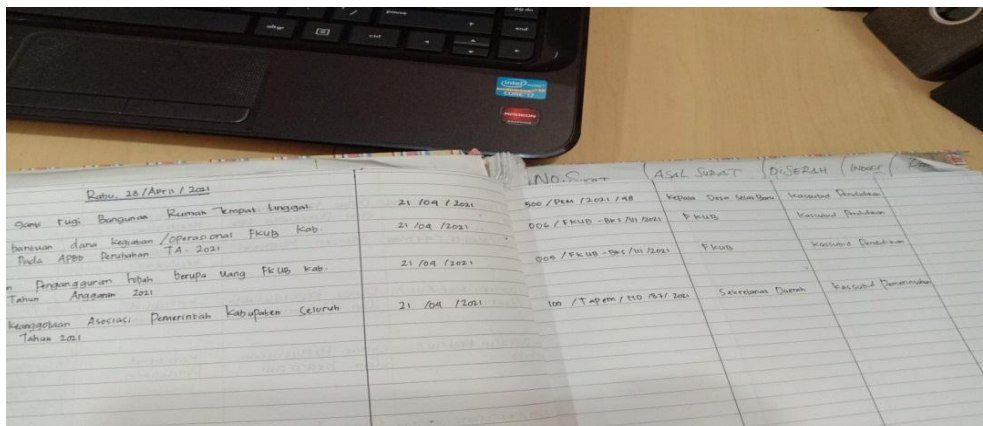 pause
pg dn
end
altgr
ctrl
intel
CORE i3
RADEON
No. Surat
ASAL SURAT
DISERAH
Rabu, 28 / April / 2021
Ganti rugi Bangunan Rumah Tempat tinggal
21 / 04 / 2021
500 / PEM / 2021 / 48
Kepala Desa
Kassubid
bantuan dana kegiatan / operasional FKUB Kab.
Pada APBD Perubahan TA - 2021
21 / 04 / 2021
006 / FKUB - BKS / III / 2021
FKUB
Kassubid
Pengangguran hibah berupa uang FKUB Kab.
Tahun Anggaran 2021
21 / 04 / 2021
005 / FKUB - BKS / III / 2021
FKUB
Kassubid
keanggotaan Asosiasi Pemerintah Kabupaten Seluruh
Tahun 2021
21 / 04 / 2021
100 / Tapem / 2021
Sekretariat Daerah
Kassubid Pemerintahan